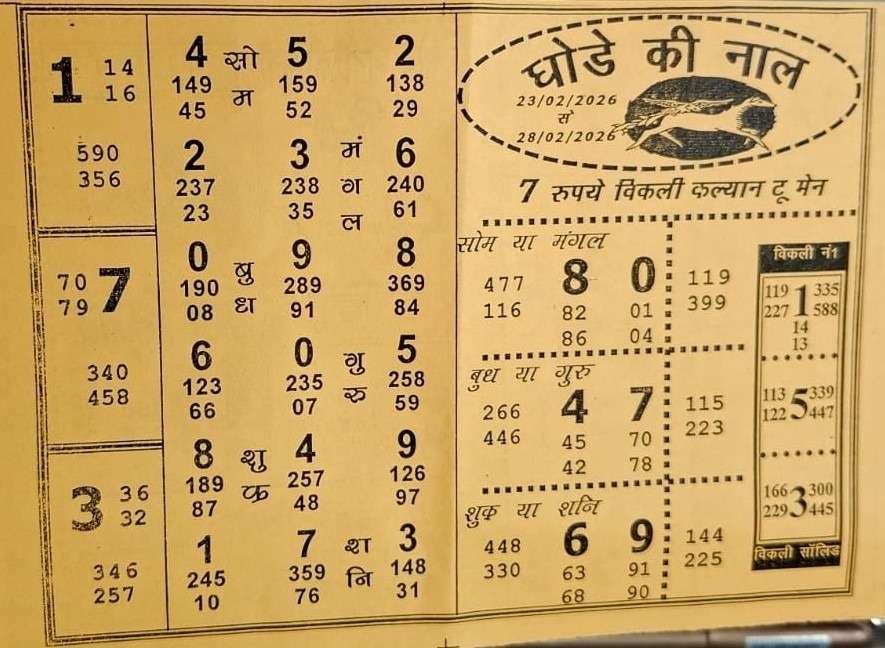 1 14
16
590
356
70 7
79
340
458
3 36
32
346
257
4 सो 5 2
149 म 159 138
45 52 29
2 3 मं 6
237 238 ग 240
23 35 ल 61
0 बु 9 8
190 ध 289 369
08 91 84
6 0 गु 5
123 235 रु 258
66 07 59
8 शु 4 9
189 क्र 257 126
87 48 97
1 7 श 3
245 359 नि 148
10 76 31
घोडे की नाल
23/02/2026
से
28/02/2026
7 रुपये विकली कल्यान टू मेन
सोम या मंगल
477 8 0 119
116 82 01 399
86 04
बुध या गुरु
266 4 7 115
446 45 70 223
42 78
शुक्र या शनि
448 6 9 144
330 63 91 225
68 90
विकली नं1
119 1 335
227 588
14
13
113 5 339
122 447
166 3 300
229 445
विकली सॉलिड